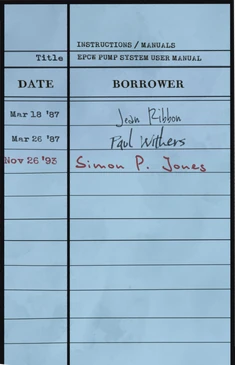 INSTRUCTIONS / MANUALS
Title EPCW PUMP SYSTEM USER MANUAL
DATE BORROWER
Mar 18 '87 Jean Ribbon
Mar 26 '87 Paul Withers
Nov 26 '93 Simon P. Jones